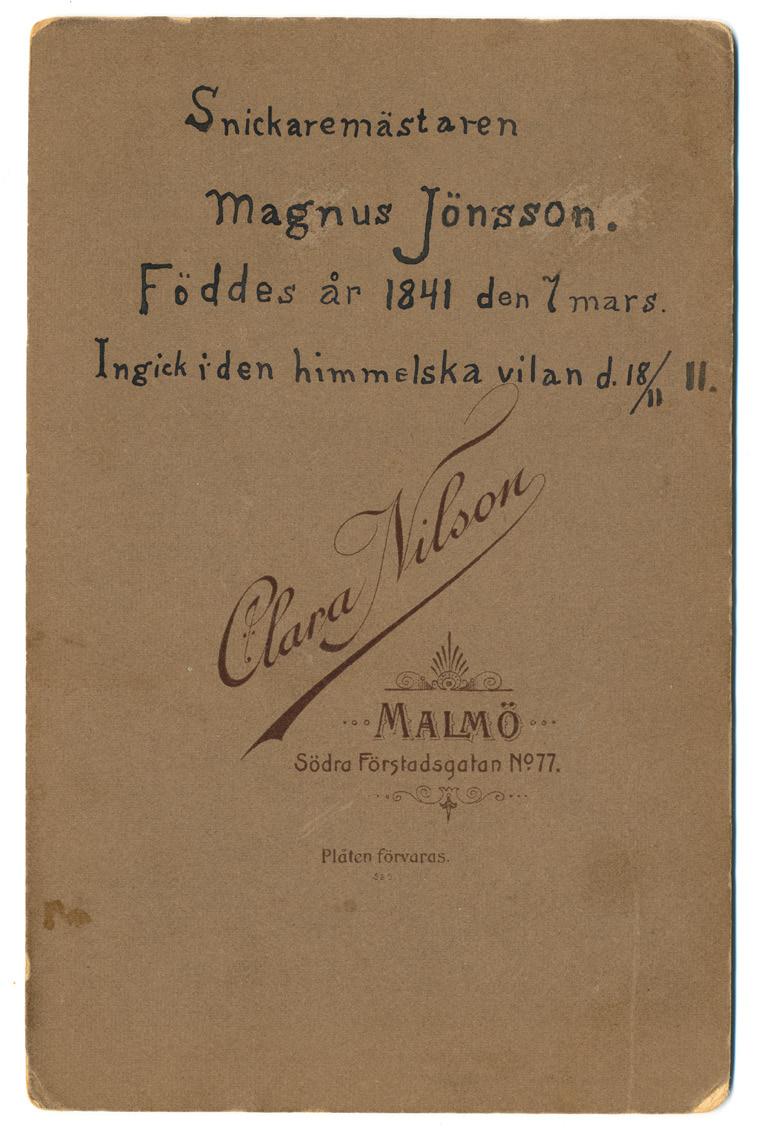 Snickaremästaren
Magnus Jönsson.
Föddes år 1841 den 7 mars.
Ingick i den himmelska vilan d. 18/11 11.
Clara Nilson
MALMÖ
Södra Förstadsgatan No 77.
Plåten förvaras.